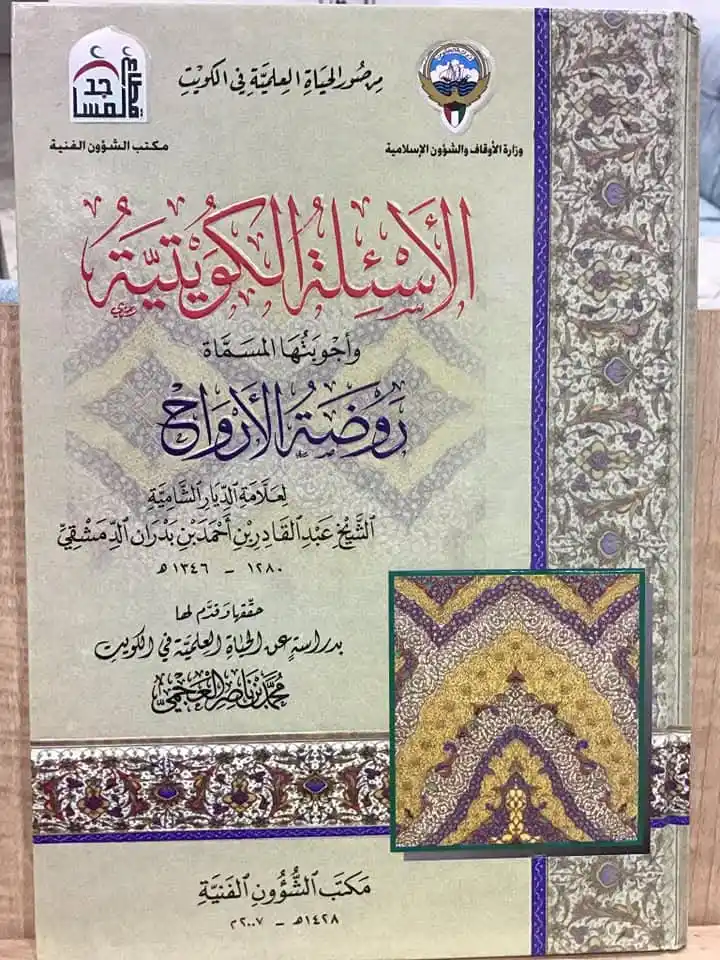 من صور الحياة العلمية في الكويت
قطاع المساجد
مكتب الشؤون الفنية
وزارة الأوقاف والشؤون الإسلامية
الأَسْئِلَةُ الكُوَيْتِيَّةُ
وأجوبتُها المسمَّاة
رَوْضَةُ الأَرْوَاحِ
لعلَّامة الديار الشاميَّة
الشَّيْخِ عَبْدِ القَادِرِ بْنِ أَحْمَدَ بْنِ بَدْرَان الدِّمَشْقِيِّ
١٢٨٠ - ١٣٤٦ هـ
حققها وقدّم لها
بدراسةٍ عن الحياة العلميَّة في الكويت
محمد بن ناصر العجمي
مَكتَب الشُّؤُونِ الفَنيَّة
١٤٢٨هـ - ٢٠٠٧م